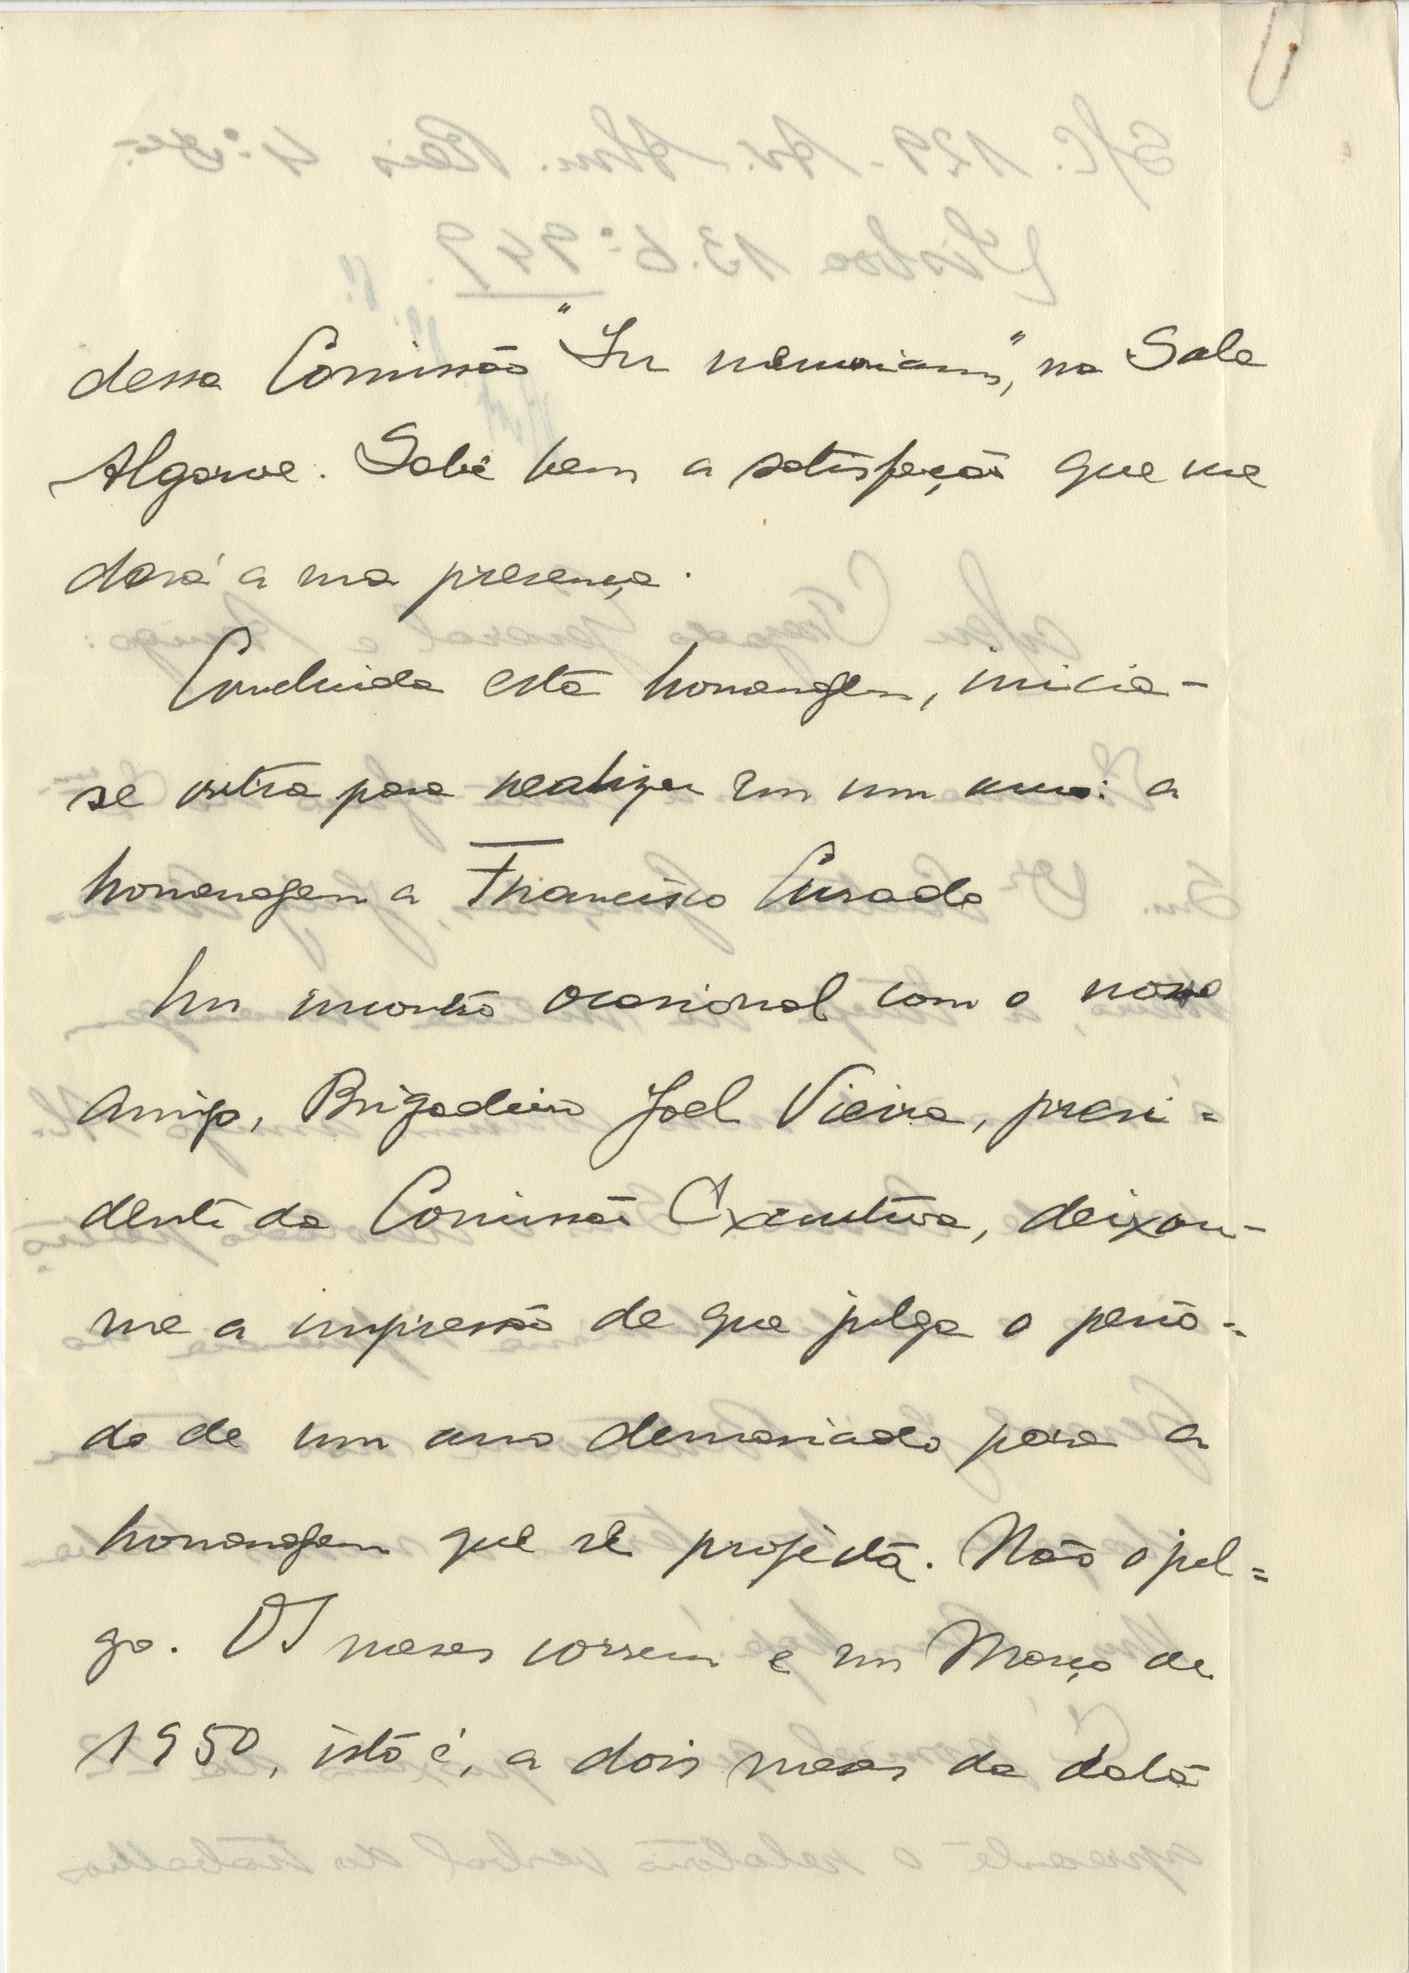 dessa Comissão "In memoriam", na Sala
Algarve. Sabe bem a satisfação que me
dará a sua presença.
Concluida esta homenagem, inicia-
se outra para realizar em um ano: a
homenagem a Francisco Curado
Um encontro ocasional com o nosso
amigo, Brigadeiro Joel Vieira, presi=
dente da Comissão Executiva, deixou-
me a impressão de que julga o perío=
do de um ano demasiado para a
homenagem que se projéta. Não o jul=
go. Os meses correm e em Março de
1950, isto é, a dois meses da data